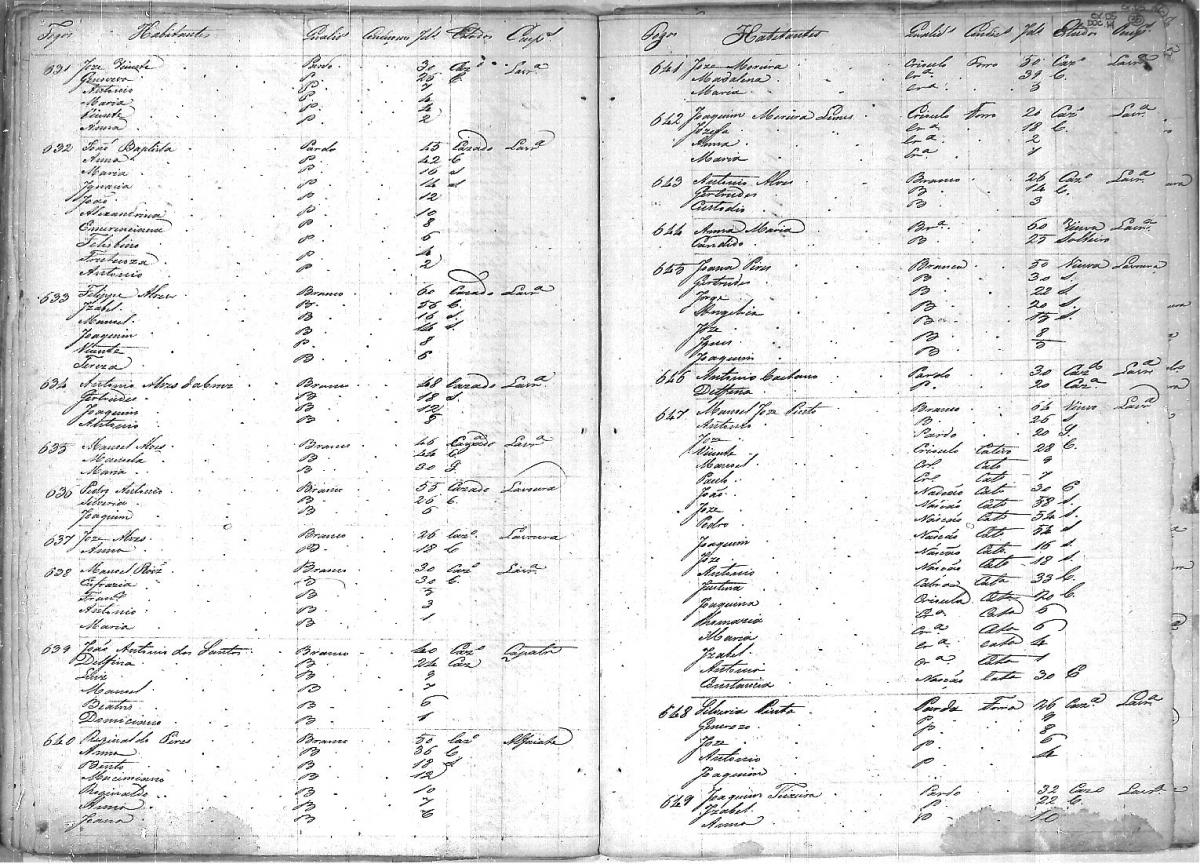 Fogos Habitantes Qualid.s Condiçoens Id.s Estados Ocup.s
631 Joze Vicente Pardo 30 Caz.o Lavr.a
Genoveva P 25 C
Antonio P 7
Maria P 4
Vicente P 4
Anna P 2
632 João Baptista Pardo 45 Cazado Lavr.a
Anna P 42 C
Maria P 16 S
Ignacia P 14 S
João P 12
Alexandrina P 10
Emerenciana P 8
Felisbino P 6
P 4
Antonio P 2
633 Felippe Alves Branco 60 Cazado Lavr.a
Izabel B 56 C
Manoel B 16 S
Joaquim B 14 S
Vicente P 8
Tereza B 6
634 Antonio Alves da Cruz Branco 48 Cazado Lavr.a
Gertrudes B 18 S
Joaquim B 12
Antonio B 8
635 Manoel Alves Branco 46 Cazado Lavr.a
Manoela B 44 C
Maria B 30 S
636 Pedro Antonio Branco 55 Cazado Lavoura
Silveria B 26 C
Joaquim B 6
637 Joze Alves Branco 26 Caz.o Lavoura
Anna B 18 C
638 Manoel Roiz Branco 30 Caz.o Lavr.a
Eufrazia B 30 C
Fran.co B 5
Antonio B 3
Maria B 1
639 João Antonio dos Santos Branco 40 Caz.o Çapatr.o
Delfina B 24 Caz
Luis B 9
Manoel B 7
Beatris B 6
Domiciano B 1
640 Reginaldo Peres Branco 50 Caz.o Alfaiate
Anna B 36 C
Bento B 18 S
Maximiano B 12
Reginaldo B 10
Anna B 7
Joana B 6
Fogos Habitantes Qualid.s Condiç.s Id.s Estados Ocup.s
641 Joze Moreira Crioulo Forro 50 Caz.o Lavr.a
Madalena Cr.a 39 C
Maria Cr.a 3
642 Joaquim Moreira Lemes Crioulo Forro 20 Caz.o Lavr.a
Jozefa Cr.a 18 C
Anna Cr.a 2
Maria Cr.a 1
643 Antonio Alves Branco 26 Caz.o Lavr.a
Gertrudes B 14 C
Custodio B 3
644 Anna Maria Br.a 60 Viuva Lavr.a
Candido B 25 Solteiro
645 Joana Pires Branca 50 Viuva Lavoura
Gertrudes B 30 S
Jorge B 22 S
Angelica B 20 S
Joze B 15 S
Ignes B 8
Joaquim B 5
646 Antonio Caetano Pardo 30 Caz.do Lavr.a
Delfina P 20 Caz.a
647 Manoel Joze Pinto Branco 64 Viuvo Lavr.a
Antonio B 26 S
Joze Pardo 20 S
Vicente Crioulo Cativo 28 C
Manoel Cr.o Cat.o 9
Paulo Cr. Cat.o 7
João Nascão Cat.o 30 C
Joze Nascão Cat.o 38 S
Pedro Nascão Cat.o 34 S
Joaquim Nascão Cat.o 54 S
Joze Nascão Cat.o 16 S
Antonio Nascão Cat.o 18 S
Justina Cabra Cat.a 33 C
Joaquina Crioula Cat.a 20 C
Cr.a Cat.a 6
Maria Cr.a Cat.a 6
Izabel Cr.a Cat.a 4
Antonia Cr.a Cat.a 1
Constancia Nascão Cat.a 30 C
648 Silveria Pinta Parda Forra 26 Caz.a Lavr.a
Generozo P 9
Joze P 8
Antonio P 6
Joaquim P 4
649 Joaquim Teixeira Pardo 32 Cazo Lavr.a
Izabel P 22 C
Anna P 10